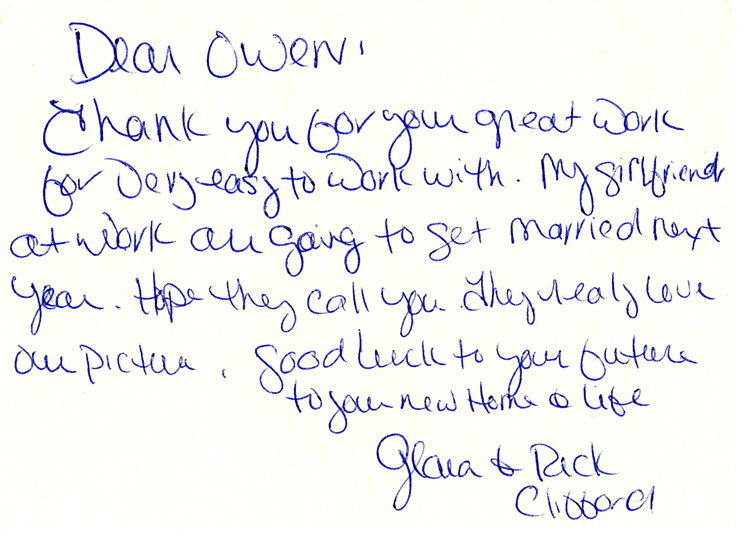 Dear Owen,
Thank you for your great work
for very easy to work with. My girlfriend
at work are going to get married next
year. Hope they call you. They realy love
our picture. Good luck to your future
to your new Home & Life
& Rick
Clifford